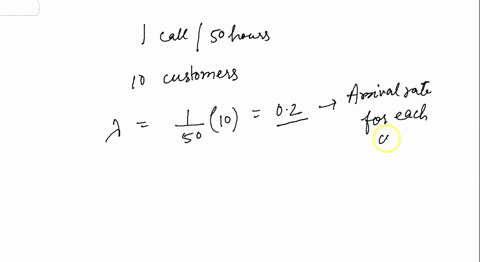 1 call / 50 hours
10 customers
λ = 1/50 (10) = 0.2 → Arrival rate
for each
c